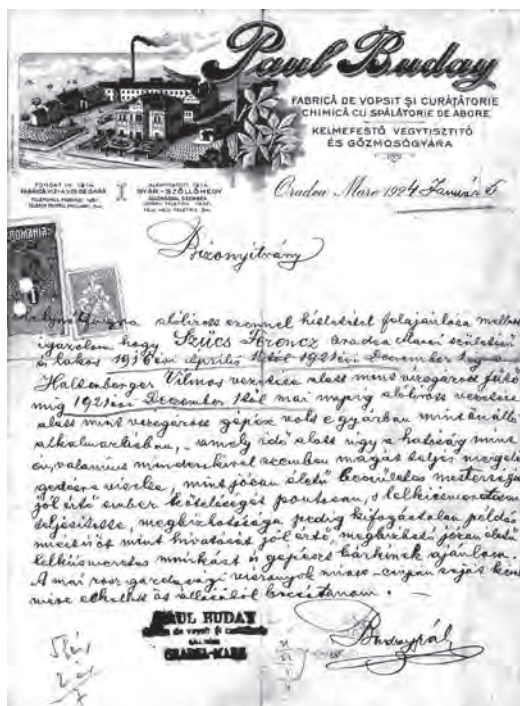 Paul Buday
FABRICĂ DE VOPSIT ŞI CURĂŢĂTORIE
CHIMICĂ CU SPĂLĂTORIE DE ABORE
KELMEFESTŐ VEGYTISZTITÓ
ÉS GŐZMOSÓGYÁRA
FONDAT IN 1914
ALAPÍTTATOTT 1914
GYÁR-SZŐLLŐHEGY
Oradea Mare 1924 Január 5
Bizonyitvány
ROMANIA
alólirott ezennel hitelesítet felajánlása mellett
igazolom hogy Szűcs Ferencz Oradea Marei születésű
és lakos 1916 évi április 1től 1921 évi December
Haltenberger Vilmos vezetése alatt mint vizsgázott fűtő
míg 1921 évi December 1től mai napig alólirott vezetése
alatt mint vizsgázott gépész volt e gyárban mint önálló
alkalmaztásban, - amely idő alatt ugy a hatóság mint
valamint mindenkivel szemben magát teljes megelé
gedésre viselte, mint józan életű becsületes mesterségét
jól értő ember kötelességét pontosan, s lelkiismeretesen
teljesítette, megbizhatósága pedig kifogástalan példás
mint hivatását jól értő, megbizható józan életű
lelkiismeretes munkást és gépészt bárkinek ajánlom.
A mai rossz gazdasági viszonyok miatt csupán saját kér
mére
PAUL BUDAY
de vopsit şi
ORADEA-MARE
Buday Pál